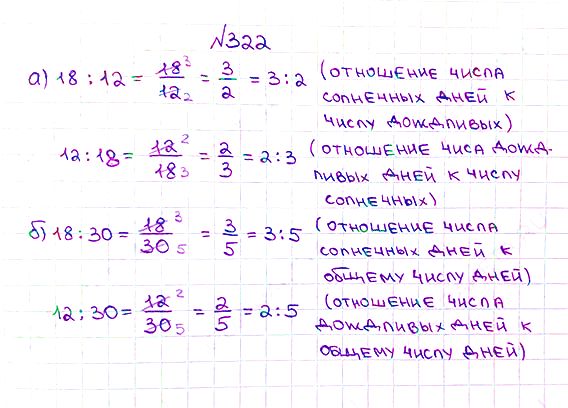 №322
а) 18 : 12 = 18³/12₂ = 3/2 = 3 : 2 (ОТНОШЕНИЕ ЧИСЛА
СОЛНЕЧНЫХ ДНЕЙ К
ЧИСЛУ ДОЖДЛИВЫХ)
12 : 18 = 12²/18₃ = 2/3 = 2 : 3 (ОТНОШЕНИЕ ЧИСА ДОЖД-
ЛИВЫХ ДНЕЙ К ЧИСЛУ
СОЛНЕЧНЫХ)
б) 18 : 30 = 18³/30₅ = 3/5 = 3 : 5 (ОТНОШЕНИЕ ЧИСЛА
СОЛНЕЧНЫХ ДНЕЙ К
ОБЩЕМУ ЧИСЛУ ДНЕЙ)
12 : 30 = 12²/30₅ = 2/5 = 2 : 5 (ОТНОШЕНИЕ ЧИСЛА
ДОЖДЛИВЫХ ДНЕЙ К
ОБЩЕМУ ЧИСЛУ ДНЕЙ)